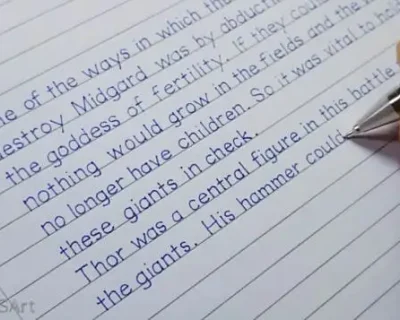 of the ways in which
Midgard was by
the goddess of fertility. If they
nothing would grow in the fields and the
no longer have children. So it was vital to hold
these giants in check.
Thor was a central figure in this battle
the giants. His hammer could
SArt